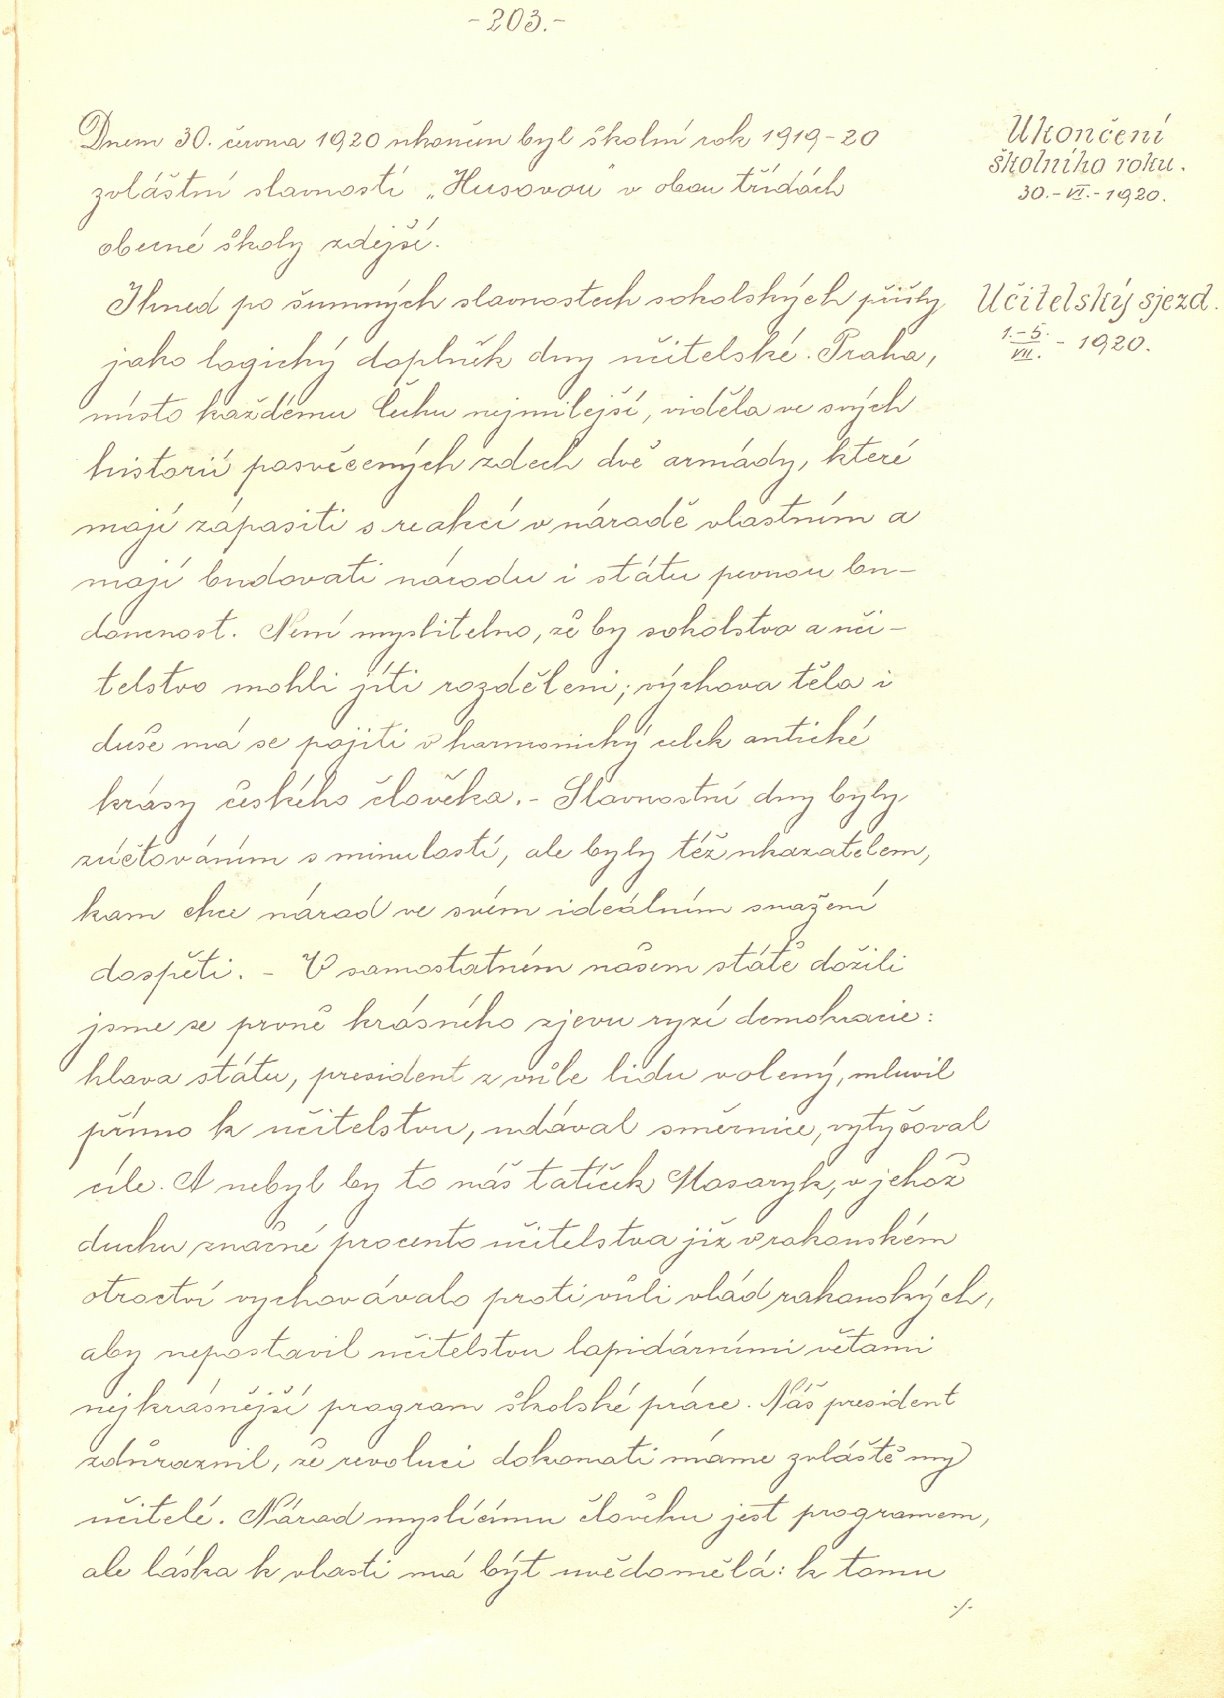 -203.-
Dnem 30. června 1920 ukončen byl školní rok 1919-20
zvláštní slavností „Husovou" v obou třídách
obecné školy zdejší.
Ukončení
školního roku.
30.-VI.-1920.
Ihned po šumných slavnostech sokolských přišly
jako logický doplněk dny učitelské. Praha,
místo každému Čechu nejmilejší, viděla ve svých
historií posvěcených zdech dvě armády, které
mají zápasiti s reakcí v národě vlastním a
mají budovati národu i státu pevnou bu-
doucnost. Není myslitelno, že by sokolstvo a uči-
telstvo mohli jíti rozděleni; výchova těla i
duše má se pojiti v harmonický celek antické
krásy českého člověka. - Slavnostní dny byly
zúčtováním s minulostí, ale byly též ukazatelem,
kam chce národ ve svém ideálním snažení
dospěti. - V samostatném našem státě dožili
jsme se prvně krásného zjevu ryzí demokracie:
hlava státu, president z vůle lidu volený, mluvil
přímo k učitelstvu, udával směrnice, vytyčoval
cíle. A nebyl by to náš tatíček Masaryk, v jehož
duchu značné procento učitelstva již v rakouském
otroctví vychovávalo proti vůli vlád rakouských,
aby nepostavil učitelstvu lapidárními větami
nejkrásnější program školské práce. Náš president
zdůraznil, že revoluci dokonati máme zvláště my
učitelé. Národ myslícímu člověku jest programem,
ale láska k vlasti má být uvědomělá: k tomu
./.
Učitelský sjezd.
1.-5.
VII. - 1920.